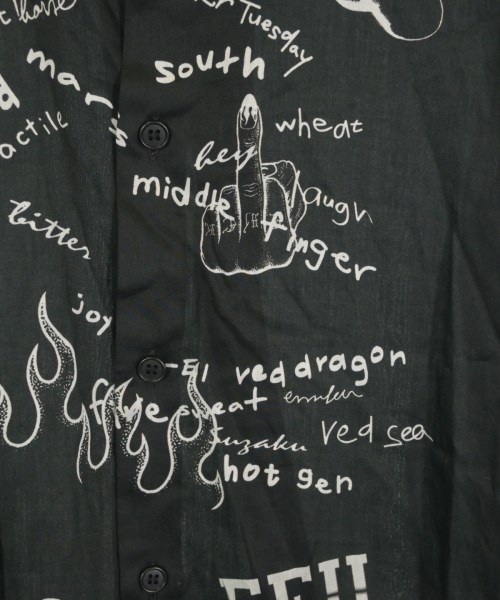 Tuesday
south
mars
actile
wheat
hey
middle
laugh
finger
bitter
joy
-El red dragon
fire sweat
Suzaku
red sea
hot gen